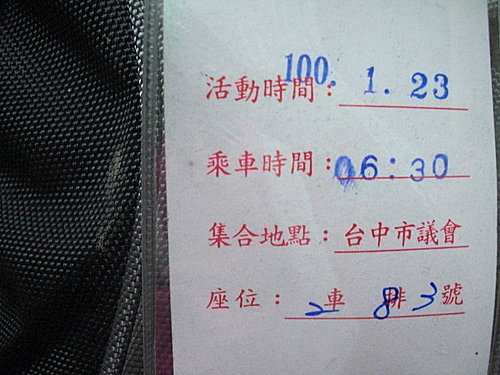 活動時間：100. 1. 23
乘車時間：06：30
集合地點：台中市議會
座位：2車 8排 3號